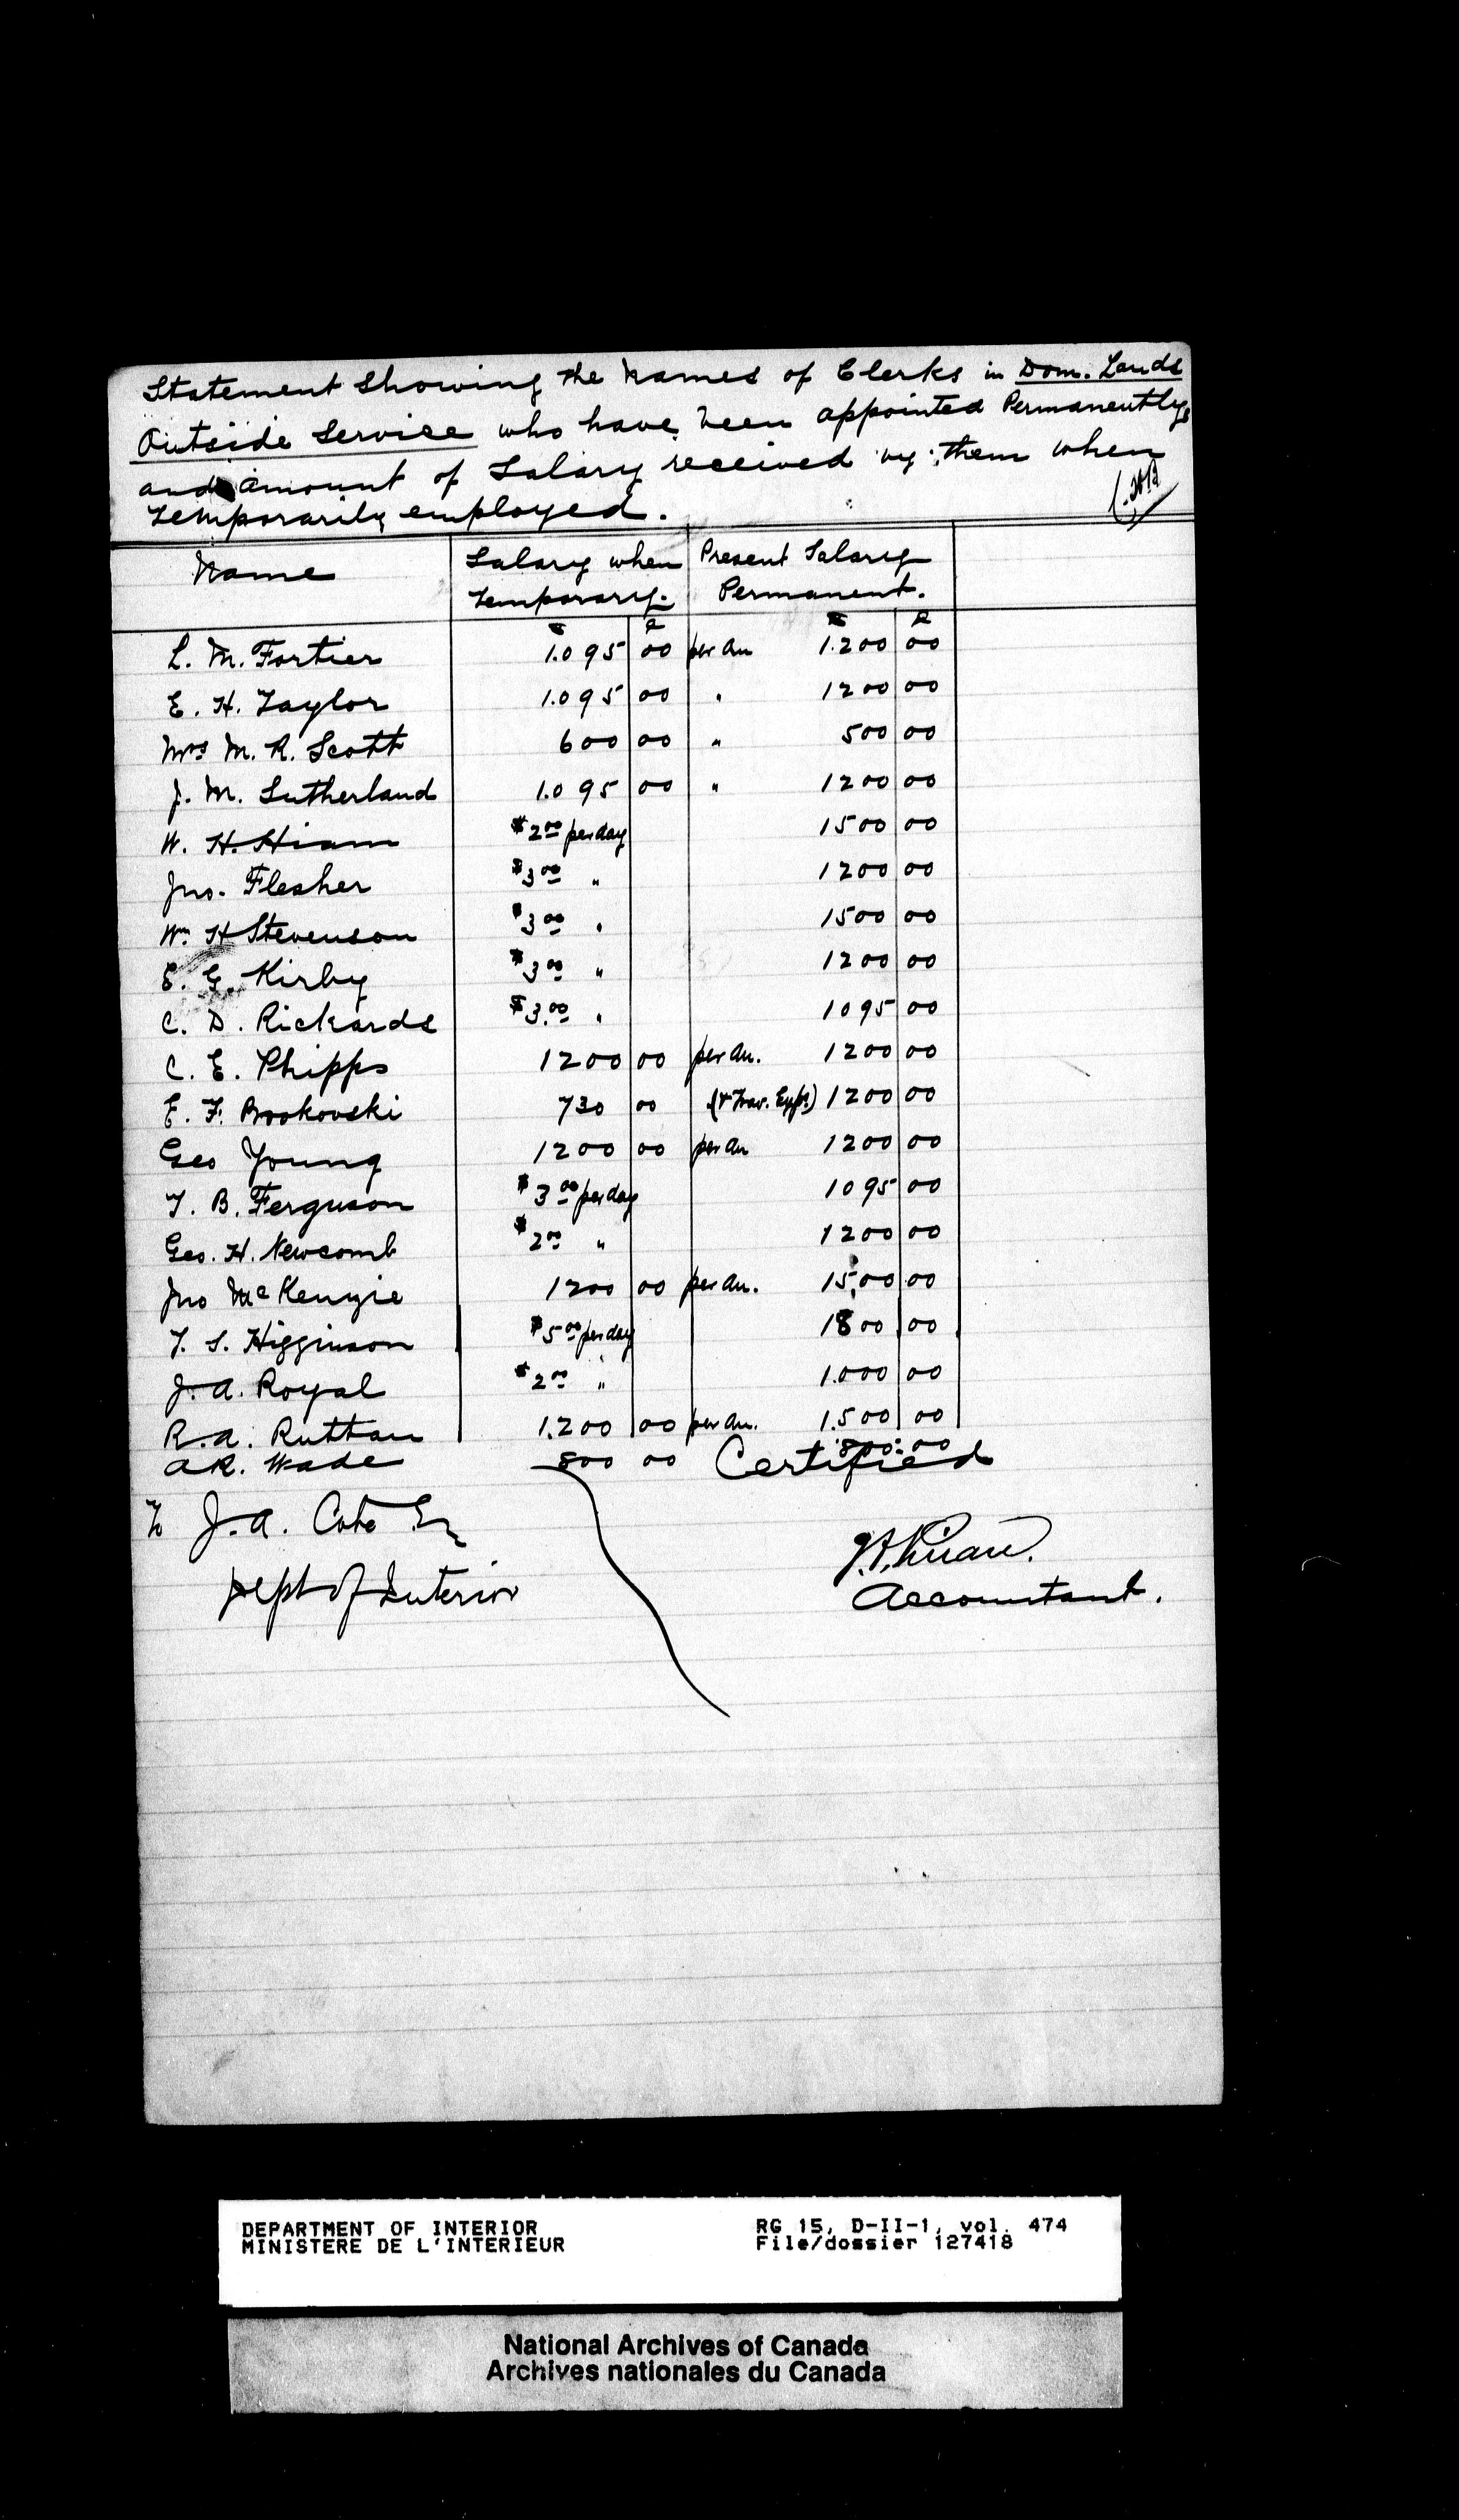 Statement Showing the Names of Clerks in Dom. Lands
Outside Service who have been appointed Permanently,
and amount of Salary received by them when
temporarily employed.
Name Salary when Present Salary
temporary. Permanent.
$ c $ c
L. M. Fortier 1.095 00 per an 1.200 00
E. H. Taylor 1.095 00 " 1200 00
Mrs M. R. Scott 600 00 " 500 00
J. M. Sutherland 1.095 00 " 1200 00
W. H. Hiam $2.00 per day 1500 00
Jno. Flesher $3.00 " 1200 00
Wm H Stevenson $3.00 " 1500 00
E. G. Kirby $3.00 " 1200 00
C. D. Rickards $3.00 " 1095 00
C. E. Phipps 1200 00 per an. 1200 00
E. F. Brokovski 730 00 (& Trav. Exps.) 1200 00
Geo Young 1200 00 per an 1200 00
T. B. Ferguson $3.00 per day 1095 00
Geo. H. Newcomb $2.00 " 1200 00
Jno McKenzie 1200 00 per an. 1500 00
T. S. Higginson $5.00 per day 1800 00
J. A. Royal $2.00 " 1.000 00
R. A. Ruttan 1.200 00 per an. 1.500 00
A R. Wade 800 00 800:00
Certified
To J. A. Cote Esq
Dept of Interior
Accountant.
DEPARTMENT OF INTERIOR RG 15, D-II-1, vol. 474
MINISTERE DE L'INTERIEUR File/dossier 127418
National Archives of Canada
Archives nationales du Canada